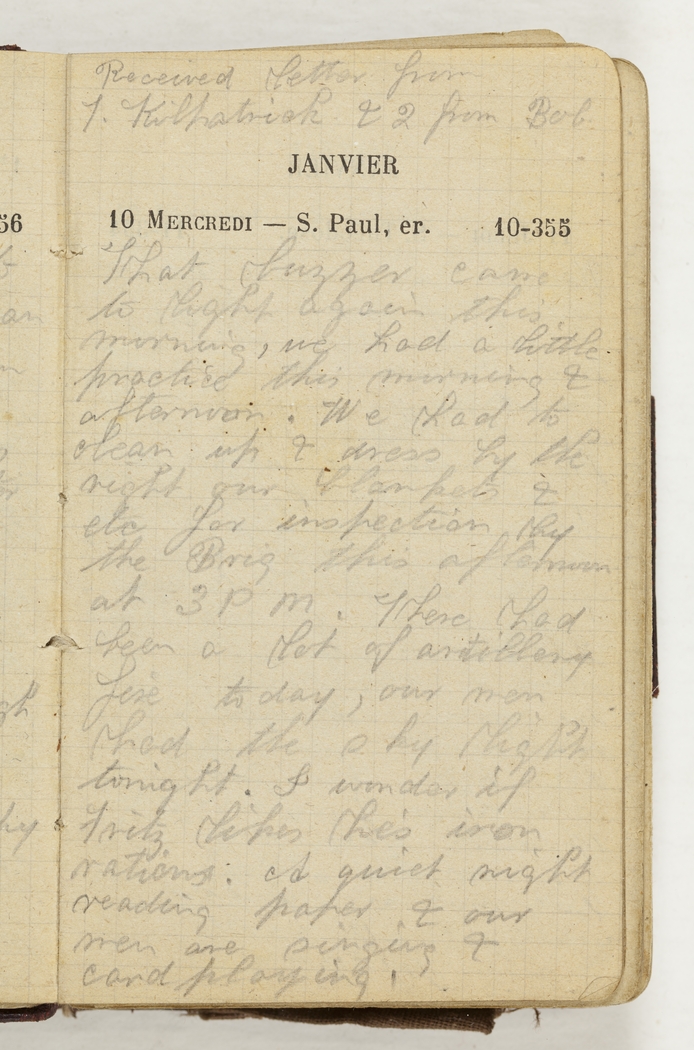 Received letter from
J. Kilpatrick & 2 from Bob
JANVIER
10 MERCREDI — S. Paul, er. 10-355
That buzzer came
to light again this
morning, we had a little
practice this morning &
afternoon. We had to
clean up & dress by the
right our blankets &
etc for inspection by
the Brig this afternoon
at 3 P m. There had
been a lot of artillery
fire today, our men
had the sky light
tonight. I wonder if
Fritz likes he's iron
rations. A quiet night
reading paper & our
men are singing &
card playing.
56
an
gh